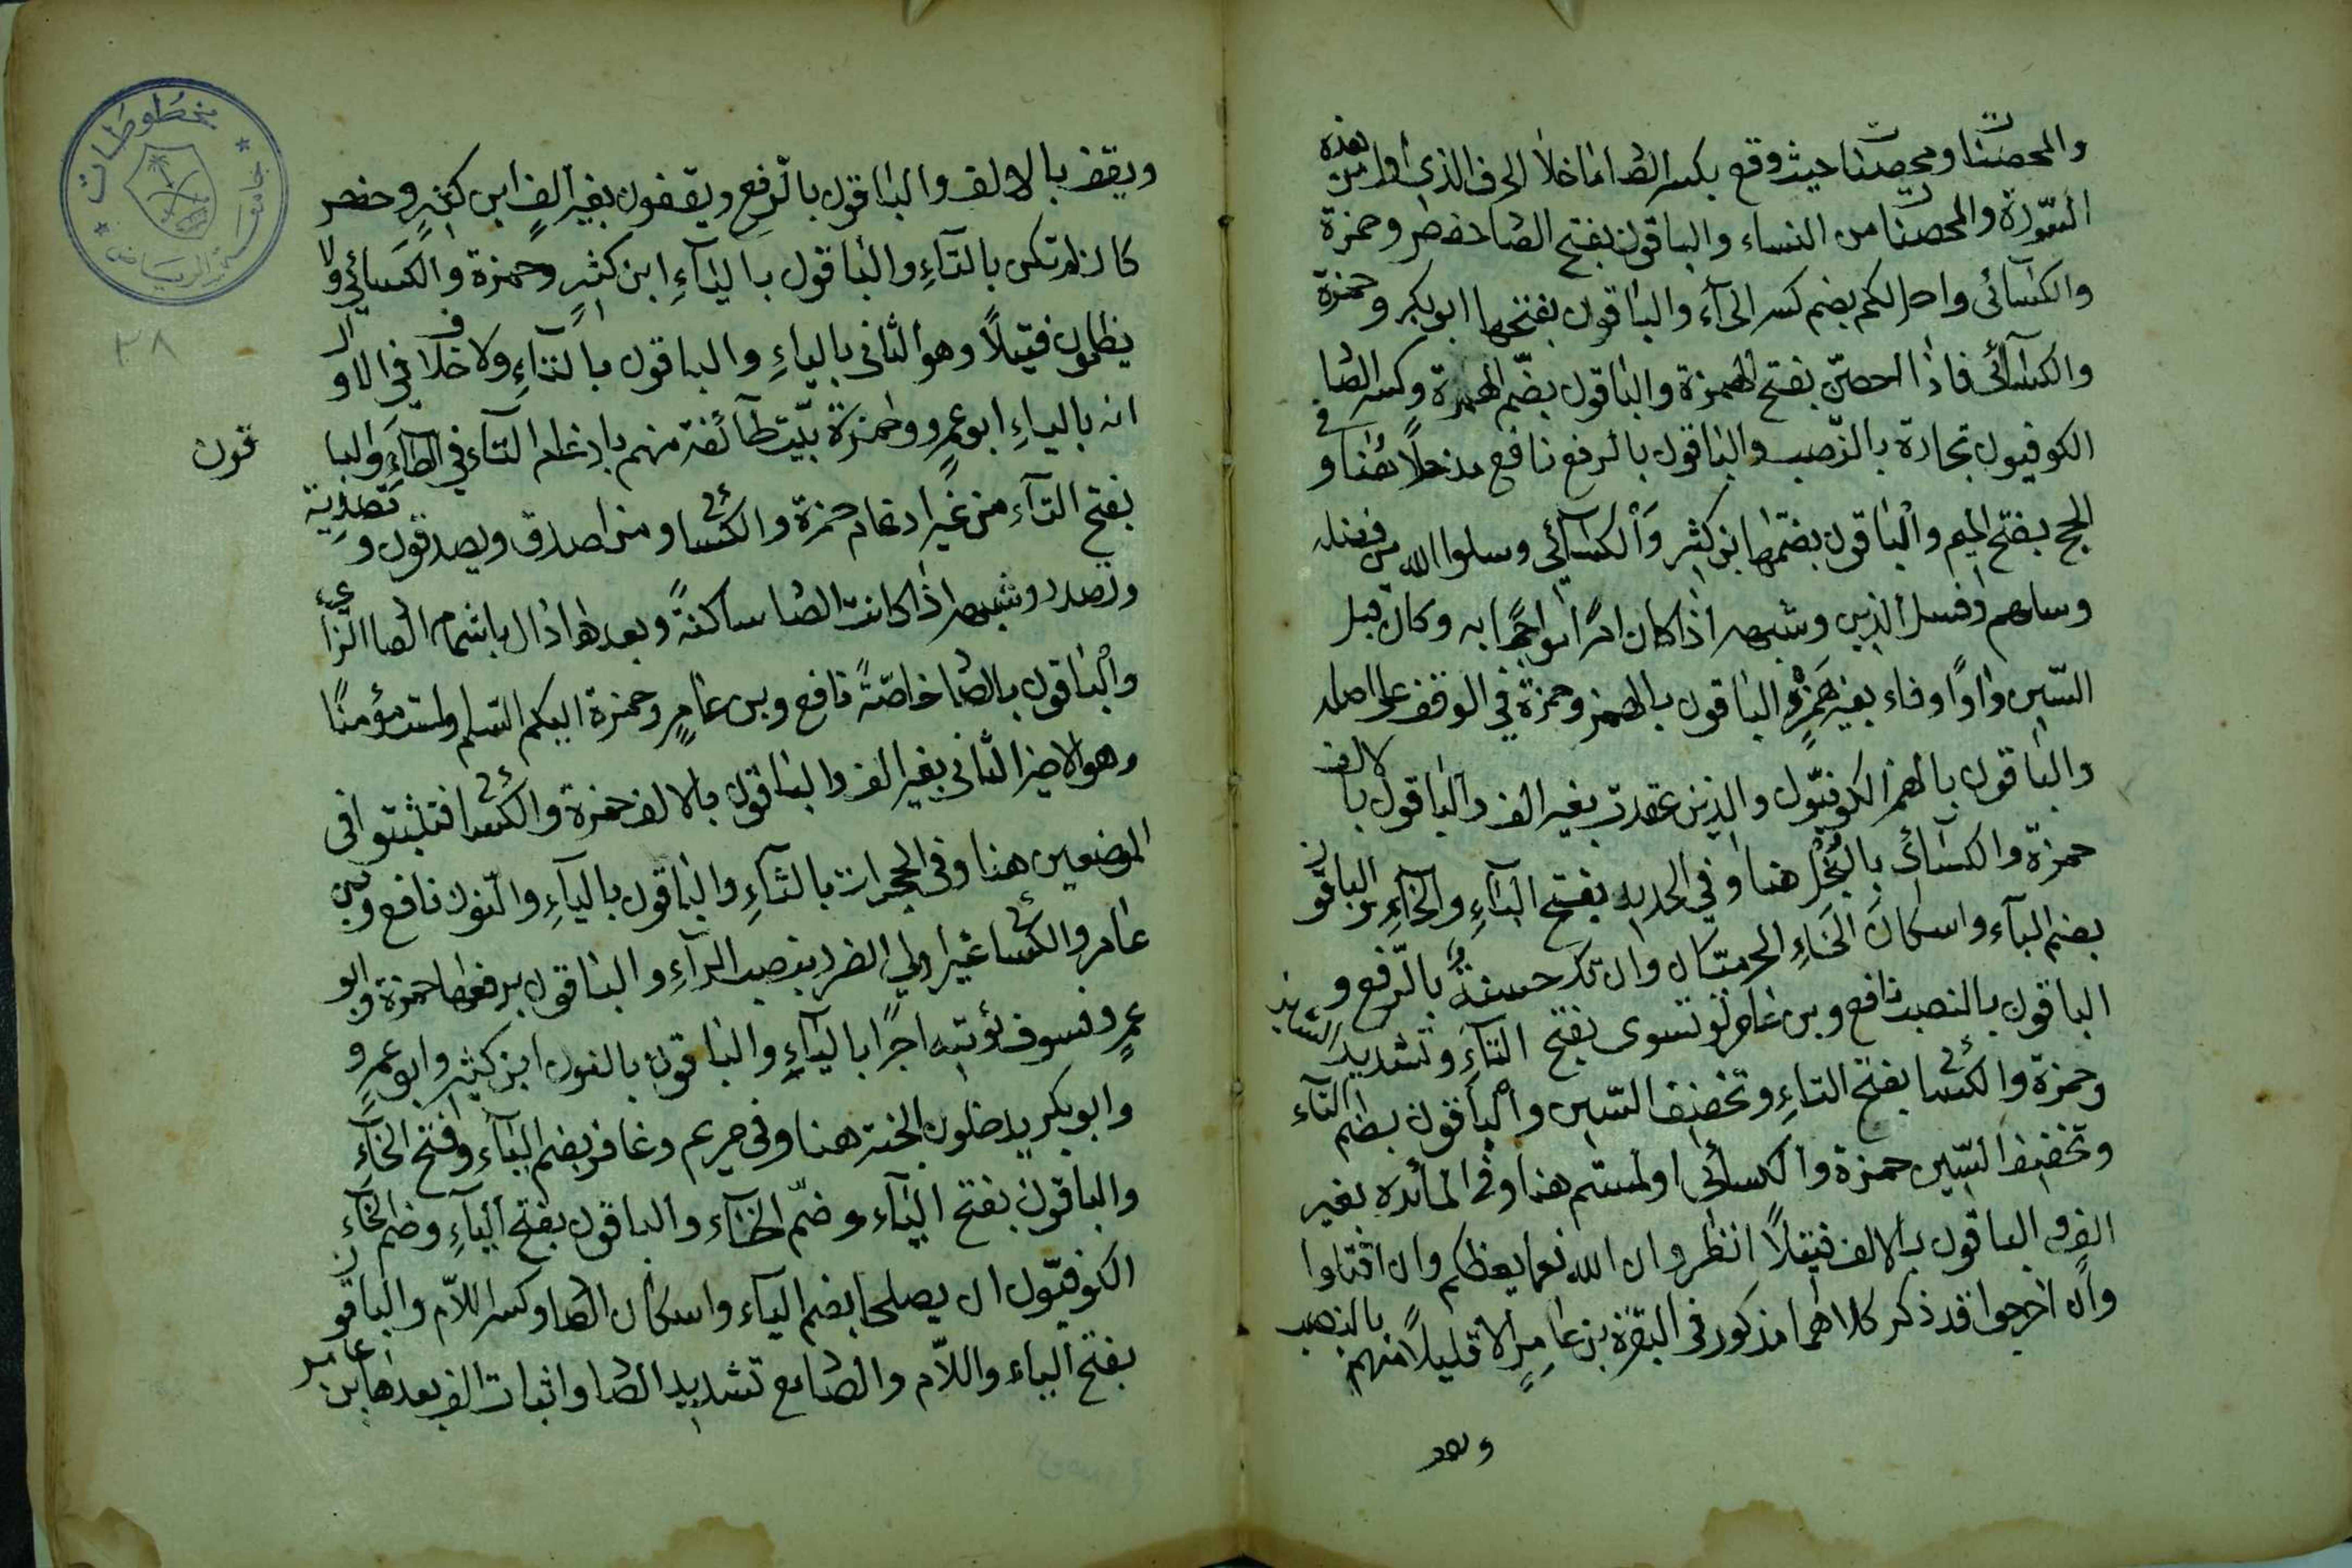 والمحصنات ومحصنات حيث وقع بكسر الصاد ما خلا الحرف الذي اول من هذه
السّورة والمحصنات من النساء والباقون بفتح الصاد حفص وحمزة
والكسائى واحل لكم بضم كسر الحآء والباقون بفتحها ابوبكر وحمزة
والكسآئى فاذا احصنّ بفتح الهمزة والباقون بضّم الهمزة وكسر الصاد
الكوفيون تجارة بالنّصب والباقون بالرفع نافع مدخلًا هنا وفي
الحج بفتح الميم والباقون بضمها ابن كثير والكسآئي وسلوا الله من فضله
وسلهم وفسل الذين وشبهه اذا كان امرًا مواجهًا به وكان قبل
السّين واوًا وفاء بغير همزٍ والباقون بالهمز وحمزة في الوقف على اصله
والباقون بالهمز الكوفيّون والذين عقدت بغير الف والباقون بالالف
حمزة والكسآئى بالبخل هنا وفي الحديد بفتح البآءِ والخآءِ والباقون
بضم البآء واسكان الخاءِ الحرميّان وان تك حسنةٌ بالرّفع و
الباقون بالنصب نافع وبن عامر لو تسوى بفتح التآءِ وتشديد السّين
وحمزة والكسائى بفتح التاءِ وتخفيف السّين والباقون بضم التآء
وتخفيف السّين حمزة والكسآئى اولمستم هنا وفى المائده بغير
الف والباقون بالالف فتيلًا انظر وان الله نعما يعظكم وان اقتلوا
وان اخرجوا قد ذكر كلاهما مذكور فى البقرة بن عامرٍ الا قليلًا منهم بالنصب
ويقف بالالف والباقون بالرّفع ويقفون بغير الفٍ ابن كثيرٍ وحفص
كان لم تكن بالتآءِ والباقون باليآءِ ابن كثيرٍ وحمزة والكسائي ولا
يظلمون فتيلًا وهو الثانى بالياءِ والباقون بالتآءِ ولا خلاف في الاول
انه بالياءِ ابوعمرٍو وحمزة بيّت طآئفة منهم بادغام التآء في الطآءِ والبا
قون
بفتح التآءِ من غير ادغام حمزة والكسائى ومن اصدق ويصدقون وتصدية
وتصدر وشبهه اذا كانت الصاد ساكنةً وبعدها دال باشمام الصاد الزاى
والباقون بالصاد خاصّةً نافع وبن عامرٍ وحمزة اليكم السّلم ولست مؤمنًا
وهو الاخير الثانى بغير الف والباقون بالالف حمزة والكسائى فتثبتوا فى
الموضعين هنا وفى الحجرات بالثآءِ والباقون باليآءِ والنّون نافع وبن
عامر والكسائى غير اولي الضرر بنصب الرآءِ والباقون برفعها حمزة وابو
عمرٍو فسوف نؤتيه اجرًا باليآءِ والباقون بالنون ابن كثير وابو عمرو
وابوبكر يدخلون الجنة هنا وفى مريم وغافر بضم اليآء وفتح الخآء
والباقون بفتح اليآء وضمّ الخآء والباقون بفتح اليآءِ وضم الخآء
الكوفيّون ان يصلحا بضم اليآء واسكان الصاد وكسر اللاّم والباقون
بفتح الياء واللاّم والصاد مع تشديد الصاد واثبات الف بعدها بن عامر
مخطوطات
جامعة الرياض
٢٨